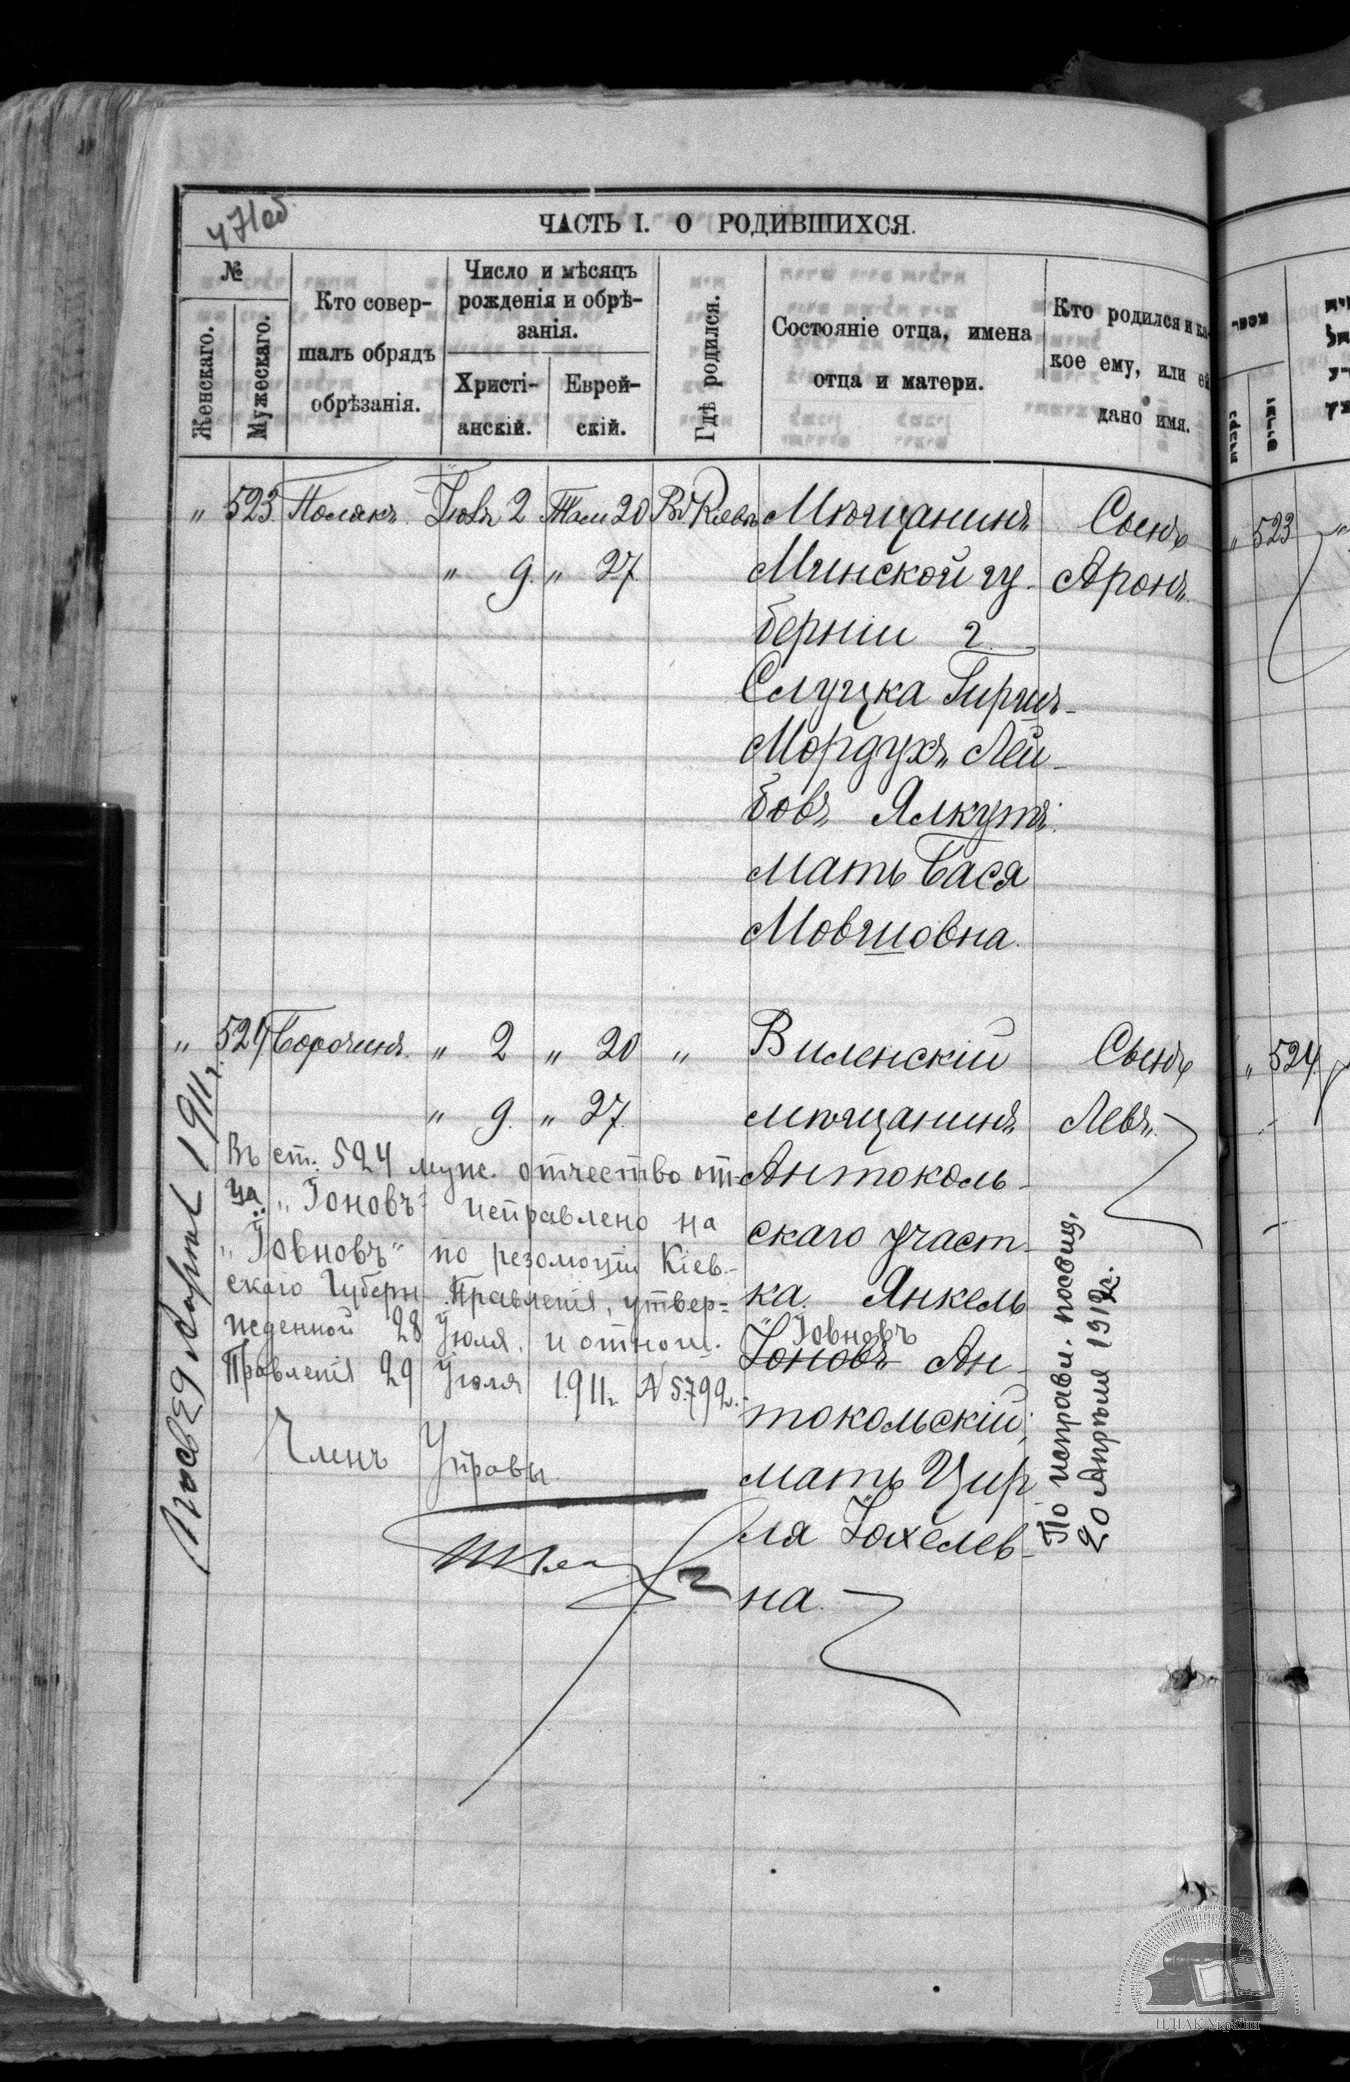 471об.
ЧАСТЬ I. О РОДИВШИХСЯ.
№
Женскаго.
Мужескаго.
Кто совер-
шалъ обрядъ
обрѣзанія.
Число и мѣсяцъ
рожденія и обрѣ-
занія.
Христі-
анскій.
Еврей-
скій.
Гдѣ родился.
Состояніе отца, имена
отца и матери.
Кто родился и ка-
кое ему, или ей
дано имя.
" 523 Полякъ. 2 20 Въ Кіевѣ Мѣщанинъ Сынъ
" 9. " 27 Минской гу- Аронъ.
берніи г.
Слуцка Гиршъ-
Мордухъ Лей-
бовъ Ялкутъ.
мать Бася
Мовшовна.
" 524 " 2 " 20 " Виленскій Сынъ
" 9. " 27. мѣщанинъ Левъ.
Антоколь-
скаго участ-
ка. Янкель
Іовновъ
Іоновъ Ан-
токольскій,
мать Цир-
ля Іохелев-
на.
Въ ст. 524 муж. отчество от-
ца "Іоновъ" исправлено на
"Іовновъ" по резолюціи Кіев-
скаго Губерн. Правленія, утвер-
жденной 28 Іюля, и отнош.
Правленія 29 Іюля 1911г. № 5792.
Членъ Управы.
1911г.
По исправл. посвид.
20 Апрѣля 1912г.
" 523
" 524.
ЦДІАК України